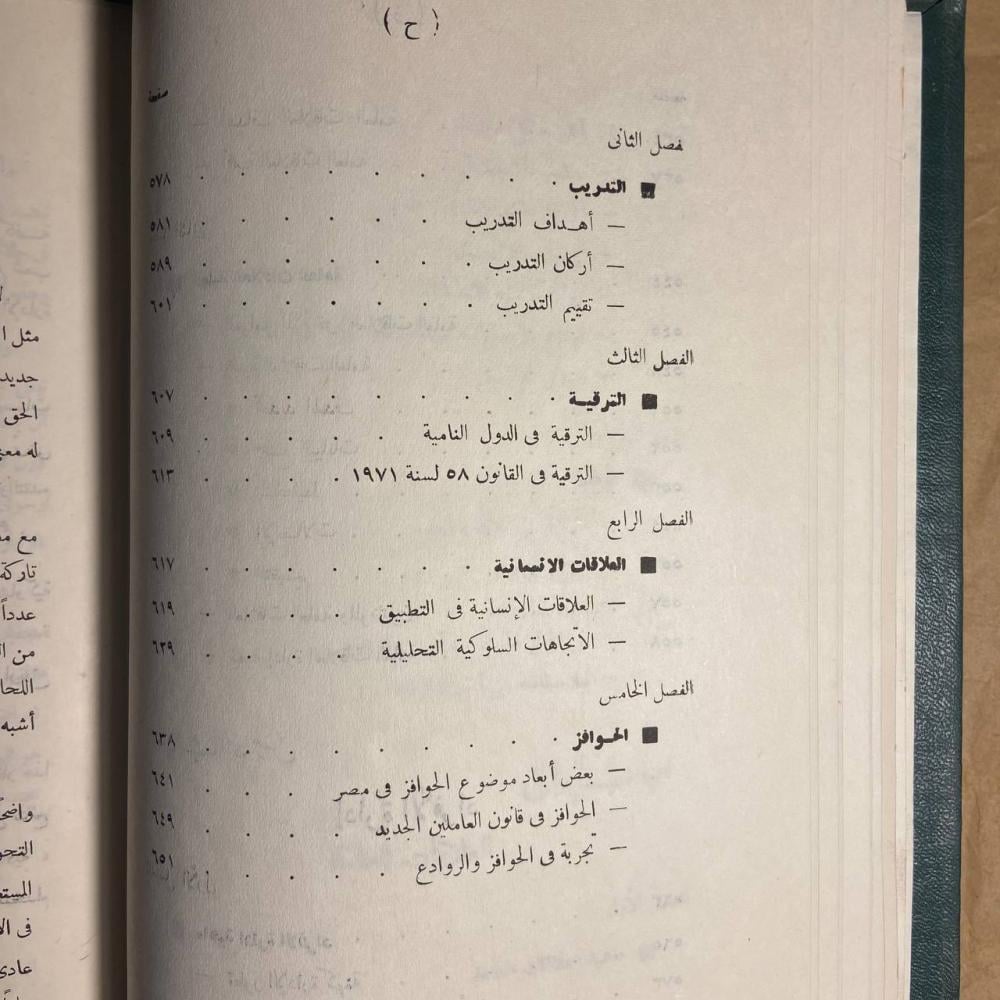 ( ح )
صفحة
فصل الثانى
■ التدريب . . . . . . . . . ٥٧٨
— أهـداف التدريب . . . . . . ٥٨١
— أركان التدريب . . . . . . ٥٨٩
— تقييم التدريب . . . . . . . ٦٠١
الفصل الثالث
■ الترقيـة . . . . . . . . . ٦٠٧
— الترقية فى الدول النامية . . . . . ٦٠٩
— الترقية فى القانون ٥٨ لسنة ١٩٧١ . . . . ٦١٣
الفصل الرابع
■ العلاقات الانسانية . . . . . . . ٦١٧
— العلاقات الإنسانية فى التطبيق . . . . ٦١٩
— الاتجاهات السلوكية التحليلية . . . . . ٦٢٩
الفصل الخامس
■ الحـوافز . . . . . . . . . ٦٣٨
— بعض أبعاد موضوع الحوافز فى مصر . . . . ٦٤١
— الحوافز فى قانون العاملين الجديد . . . . ٦٤٩
— تجربة فى الحوافز والروادع . . . . . ٦٥١
مثل ا
جديد
الحق
له معن
تاركة
عدداً
من ال
اللحا
أشبه
واضح
التحو
المستع
فى الا
عادى